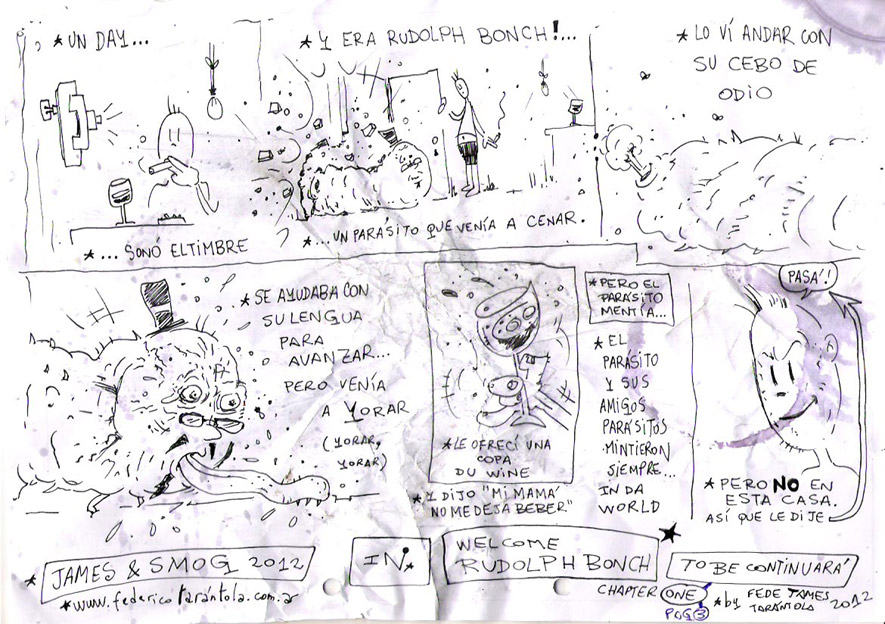 * UN DAY...
* ... SONÓ EL TIMBRE
* Y ERA RUDOLPH BONCH!...
* ... UN PARÁSITO QUE VENÍA A CENAR.
* LO VÍ ANDAR CON
SU CEBO DE
ODIO
* SE AYUDABA CON
SU LENGUA
PARA
AVANZAR...
PERO VENÍA
A YORAR
(YORAR,
YORAR)
* LE OFRECÍ UNA
COPA
DU WINE
* Y DIJO "MI MAMÁ
NO ME DEJA BEBER"
* PERO EL
PARÁSITO
MENTÍA...
* EL
PARÁSITO
Y SUS
AMIGOS
PARÁSITOS
MINTIERON
SIEMPRE...
IN DA
WORLD
PASÁ!
* PERO NO EN
ESTA CASA.
ASÍ QUE LE DIJE
* JAMES & SMOG 2012
* www.federicotarántola.com.ar
IN *
WELCOME
RUDOLPH BONCH
TO BE CONTINUARÁ
CHAPTER ONE
PAG 3
* by FEDE JAMES
TARÁNTOLA 2012